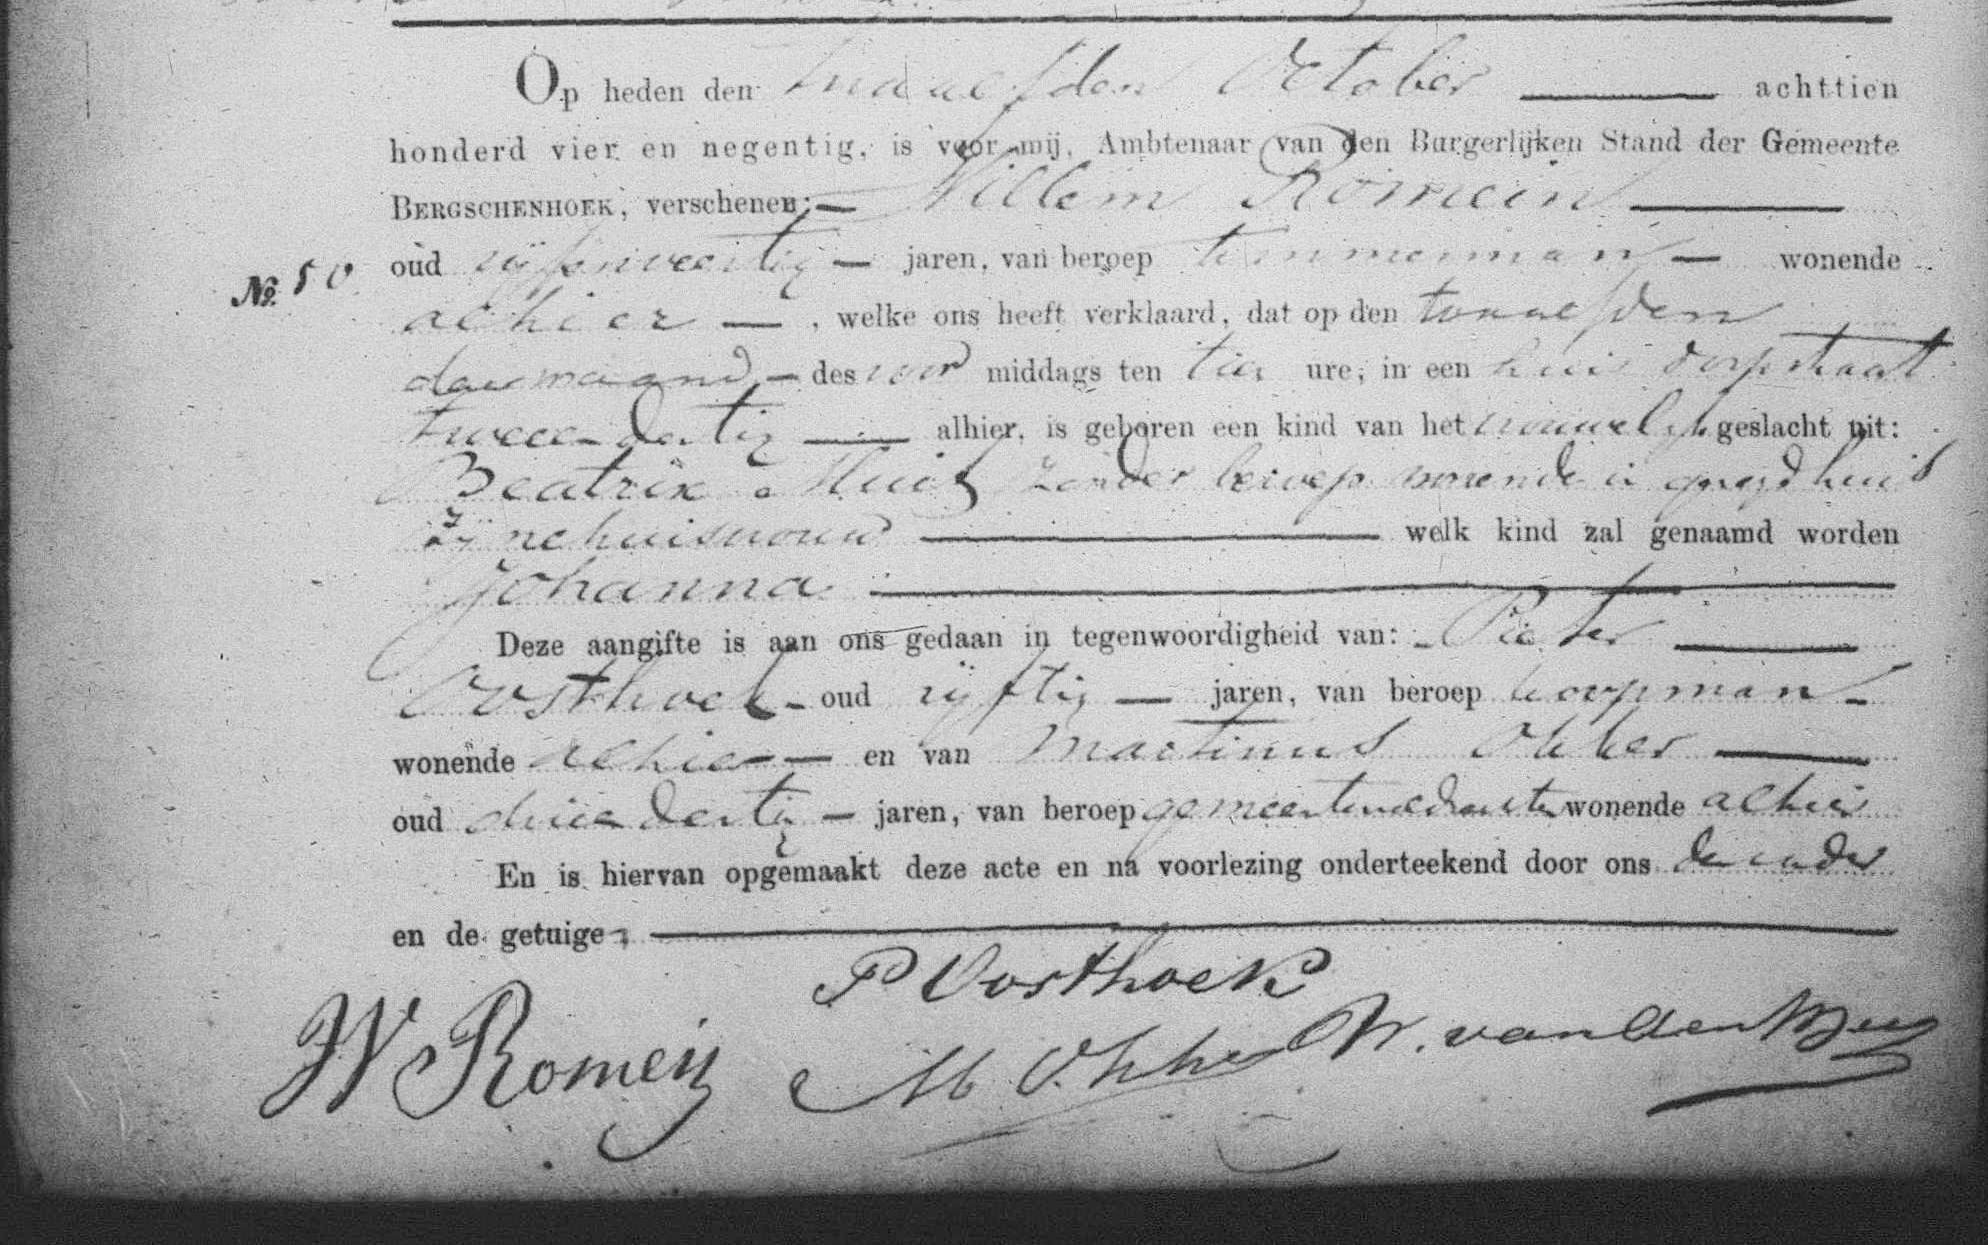 Op heden den twaalfden October achttien
honderd vier en negentig, is voor mij, Ambtenaar van den Burgerlijken Stand der Gemeente
BERGSCHENHOEK, verschenen: Willem Romein
oud vijfenveertig jaren, van beroep timmerman wonende
No. 50
alhier, welke ons heeft verklaard, dat op den twaalfden
dezer maand des voor middags ten tien ure, in een huis dorpstraat
twee en dertig alhier, is geboren een kind van het vrouwelijk geslacht uit:
Beatrix Muis zonder beroep wonende in gezegd huis
zijne huisvrouw welk kind zal genaamd worden
Johanna
Deze aangifte is aan ons gedaan in tegenwoordigheid van: Pieter
Oosthoek oud vijftig jaren, van beroep koopman
wonende alhier en van Martinus Okker
oud drie en dertig jaren, van beroep gemeenteveldwachter wonende alhier
En is hiervan opgemaakt deze acte en na voorlezing onderteekend door ons de vader
en de getuigen
P Oosthoek
W Romeijn
M Okker W. van den